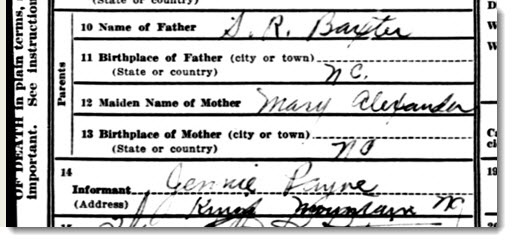 (State or country)
10 Name of Father S. R. Baxter
11 Birthplace of Father (city or town)
(State or country) N C.
12 Maiden Name of Mother Mary Alexander
13 Birthplace of Mother (city or town)
(State or country) N C
14
Informant Jennie Payne
(Address) Kings Mountain N C
Parents
OF DEATH in plain terms, s
important. See instruction